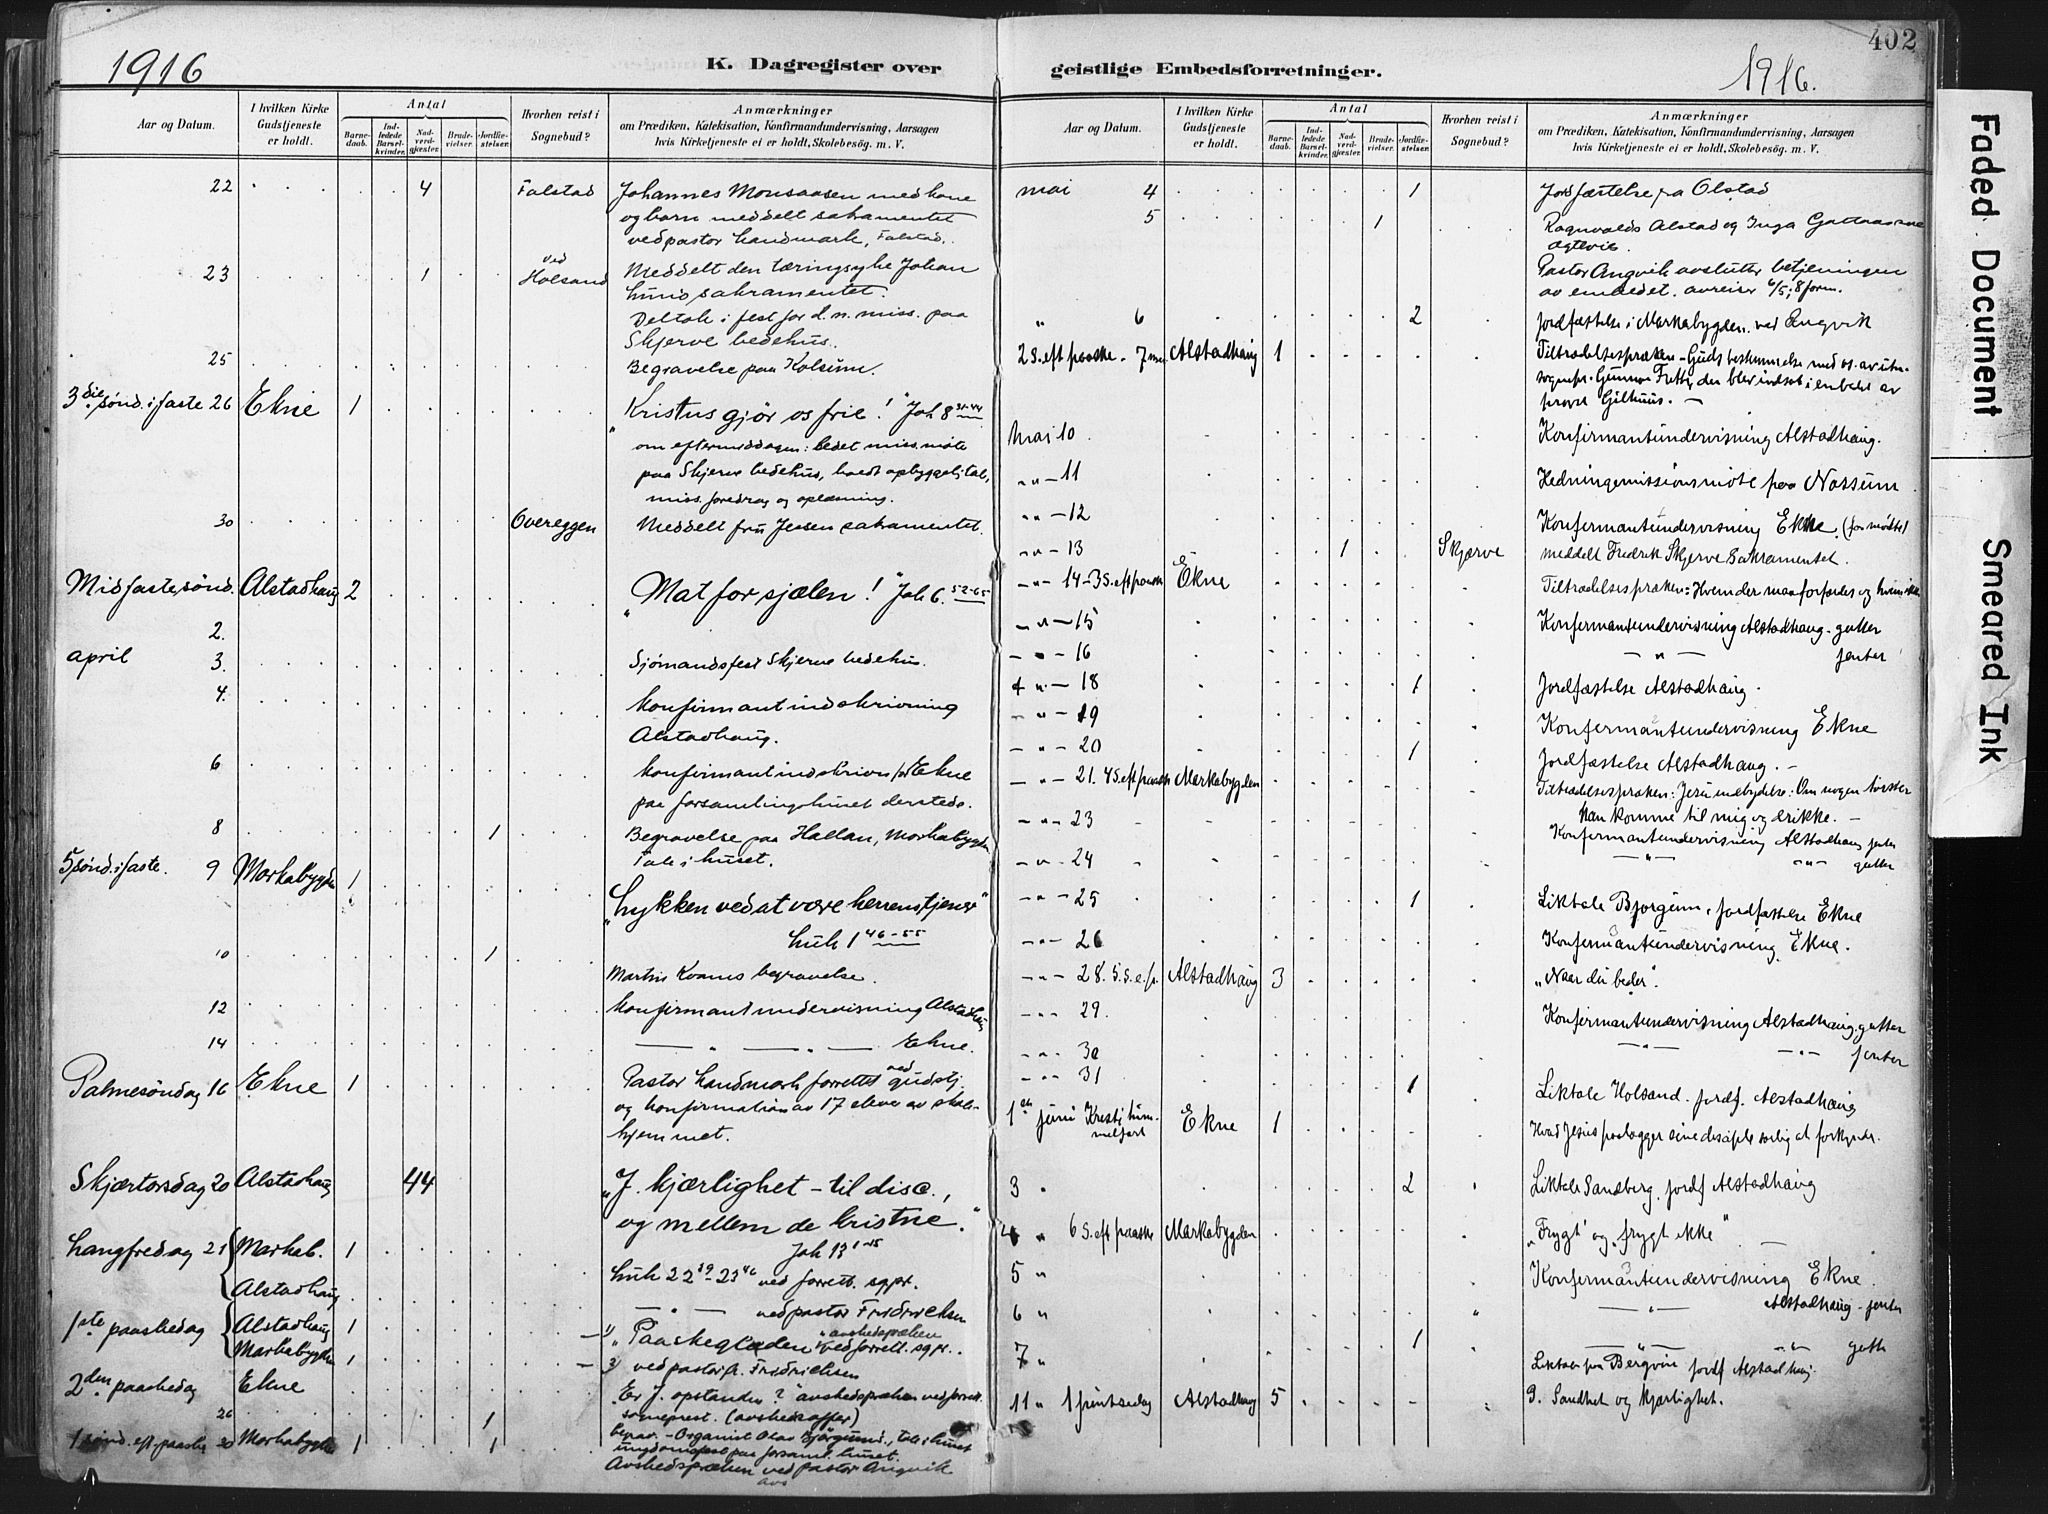 1916
K. Dagregister over
Aar og Datum.
I hvilken Kirke Gudstjeneste er holdt.
Antal
Barne-daab.
Ind-ledede Barsel-kvinder.
Nad-verd-gjæster.
Brude-vielser.
Jordfæ-stelser.
Hvorhen reist i Sognebud?
Anmærkninger
om Prædiken, Katekisation, Konfirmandundervisning, Aarsagen
hvis Kirketjeneste ei er holdt, Skolebesøg. m. V.
22 4 Falstad Johannes Monsaasen med kone
og barn meddelt sakramentet
ved pastor Landmark, Falstad.
23 1 ved Holsand Meddelt den tæringsyke Johan
sakramentet.
Deltok i fest for d. n. miss. paa
Skjerve bedehus.
25 Begravelse paa Kolsum.
3die sønd. i faste 26 Ekne 1 "Kristus gjør os frie!" Joh 8 31-44
om eftermiddagen: ledet miss. møte
paa Skjerve bedehus, holdt opbyggelj. tale,
miss. foredrag og oplæsning.
30 Overeggen Meddelt fru Jensen sakramentet.
Midfastesønd. Alstadhaug 2 "Mat for sjælen!" Joh 6. 52-65
2.
april 3. Sjømandsfest Skjerve bedehus.
4. Konfirmantindskrivning
Alstadhaug.
6 Konfirmantindskrivn for Ekne
paa forsamlingshuset dersteds.
8 1 Begravelse paa Hallan, Markabygden
Tale i huset.
5 sønd. i faste. 9 Markabygden 1
"Lykken ved at være herrens tjener"
Luk 1 46-55
10 1
Martin Kvams begravelse.
12 Konfirmantundervisning Alstadhaug
14 — " — " — Ekne.
Palmesøndag 16 Ekne 1 Pastor Landmark forrettet ved gudstj.
og konfirmation av 17 elever av skole-
hjemmet.
Skjærtorsdag 20 Alstadhaug 44 "J. kjærlighet – til disc.,
og mellem de kristne."
Joh 13 1-15
Langfredag 21 Markab. 1 Luk 22 39 - 23 46 ved forrett. sgpr.
Alstadhaug — " — ved pastor Fridrichsen
1ste paaskedag Alstadhaug 1 1) "Paaskeglæden" avskedspræken ved forrett. sgpr.
Markabygden 1 ved pastor A. Fridrichsen
2den paaskedag Ekne "Er J. opstanden?" avskedspræken ved forrett.
26 1 sogneprest. (avskedsoffer)
begrav. – Organist Olav Bjørgum, tale i huset
1 sønd. eft. paaske 30 Markabygden 1 1 ungdomsfest paa forsaml. huset.
Avskedspræken ved pastor Angvik
402
geistlige Embedsforretninger.
1916.
Aar og Datum.
I hvilken Kirke Gudstjeneste er holdt.
Antal
Barne-daab.
Ind-ledede Barsel-kvinder.
Nad-verd-gjæster.
Brude-vielser.
Jordfæ-stelser.
Hvorhen reist i Sognebud?
Anmærkninger
om Prædiken, Katekisation, Konfirmandundervisning, Aarsagen
hvis Kirketjeneste ei er holdt, Skolebesøg. m. V.
mai 4 1 Jordfæstelse fra Olstad
5 1 Ragnvalds Alstad og Inga
Pastor Angvik avslutter betjeningen
av embedet. avreiser 6/5, 8 form.
" 6 2 Jordfæstelse i Markabygden ved Angvik
2 S. eft paaske - 7 mai Alstadhaug 1 Tiltrædelsespræken - Guds bestemmelse med os. av utn.
sognepr. Gunnar Fretty, der blev indsat i embedet av
provst Gilhuus. —
Mai 10 Konfirmantundervisning Alstadhaug.
- " - 11 Hedningemissionsmøte paa Nossum
- " - 12 Konfermantundervisning Ekne.
- " - 13 1 Skjærve meddelt Fredrik Skjerve Sakramentet.
- " - 14 - 3 S. eft paaske Ekne Tiltrædelsespræken: Hvem der maa forfærdes og hvem ikke
- " - 15 Konfermantundervisning Alstadhaug - gutter
- " - 16 — " — jenter
- " - 18 1 Jordfæstelse Alstadhaug.
- " - 19 Konfermantundervisning Ekne
- " - 20 1 Jordfæstelse Alstadhaug. -
- " - 21. 4 S. eft paaske Markabygden Tiltrædelsespræken: Jesu indbydelse: Om nogen tørster
han komme til mig og drikke. -
- " - 23 Konfermantundervisning Alstadhaug jenter
- " - 24 — " — - " - gutter
- " - 25 1 Liktale Bjørgum, jordfæstelse Ekne
- " - 26 Konfermantundervisning Ekne.
- " - 28. 5. S. e. p. Alstadhaug 3 "Naar du beder".
- " - 29. Konfermantundervisning Alstadhaug. gutter
- " - 30 — " — - " - jenter
- " - 31 1 Liktale Holsand. jordf. Alstadhaug
1ste juni Kristi him-melfart Ekne 1 Hvad Jesus paalægger sine disciple særlig at forkynde.
3 " 2 Liktale Sandberg. jordf Alstadhaug
4 " 6 S. eft paaske Markabygden "Frygt" og "frygt ikke"
5 " Konfermantundervisning Ekne.
6 " — " — Alstadhaug - jenter
7 " 1 — " — - " - gutt
Liktale paa Bergvin jordf Alstadhaug.
11 " 1 pintsedag Alstadhaug 5 P. Sandhet og kjærlighet.
Faded Document
Smeared Ink